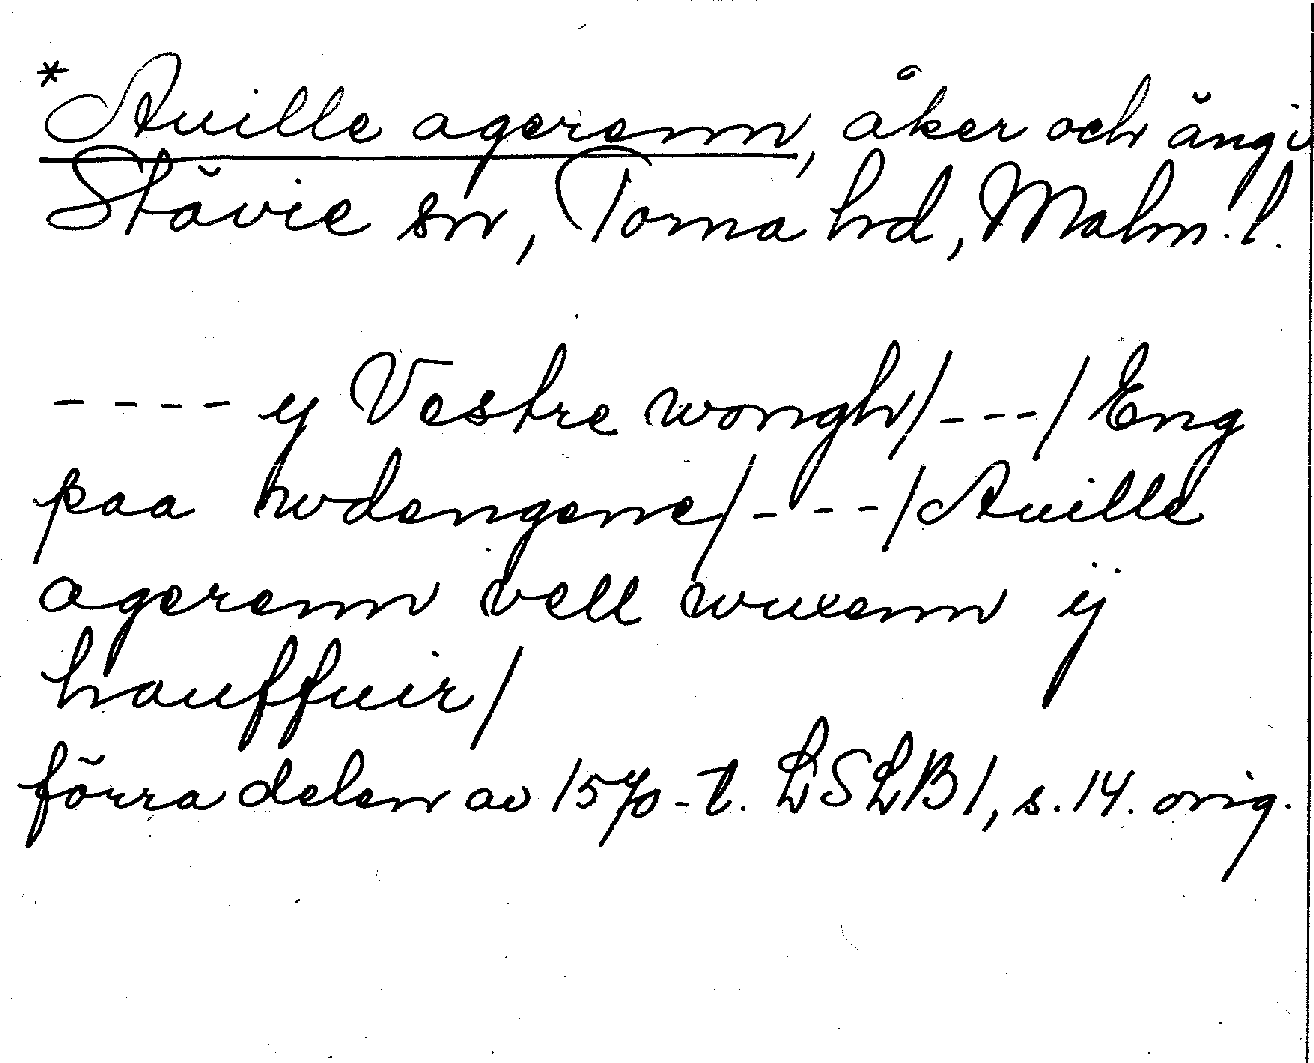 *Auille agerenn, åker och äng i
Stävie sn, Torna hd, Malm. l.
---- y Vestre wongh/---/Eng
paa hwdengene/---/Auille
agerenn vell wuxenn ÿ
hauffuir/
förra delen av 1570-t. LSLB1, s.14. orig.